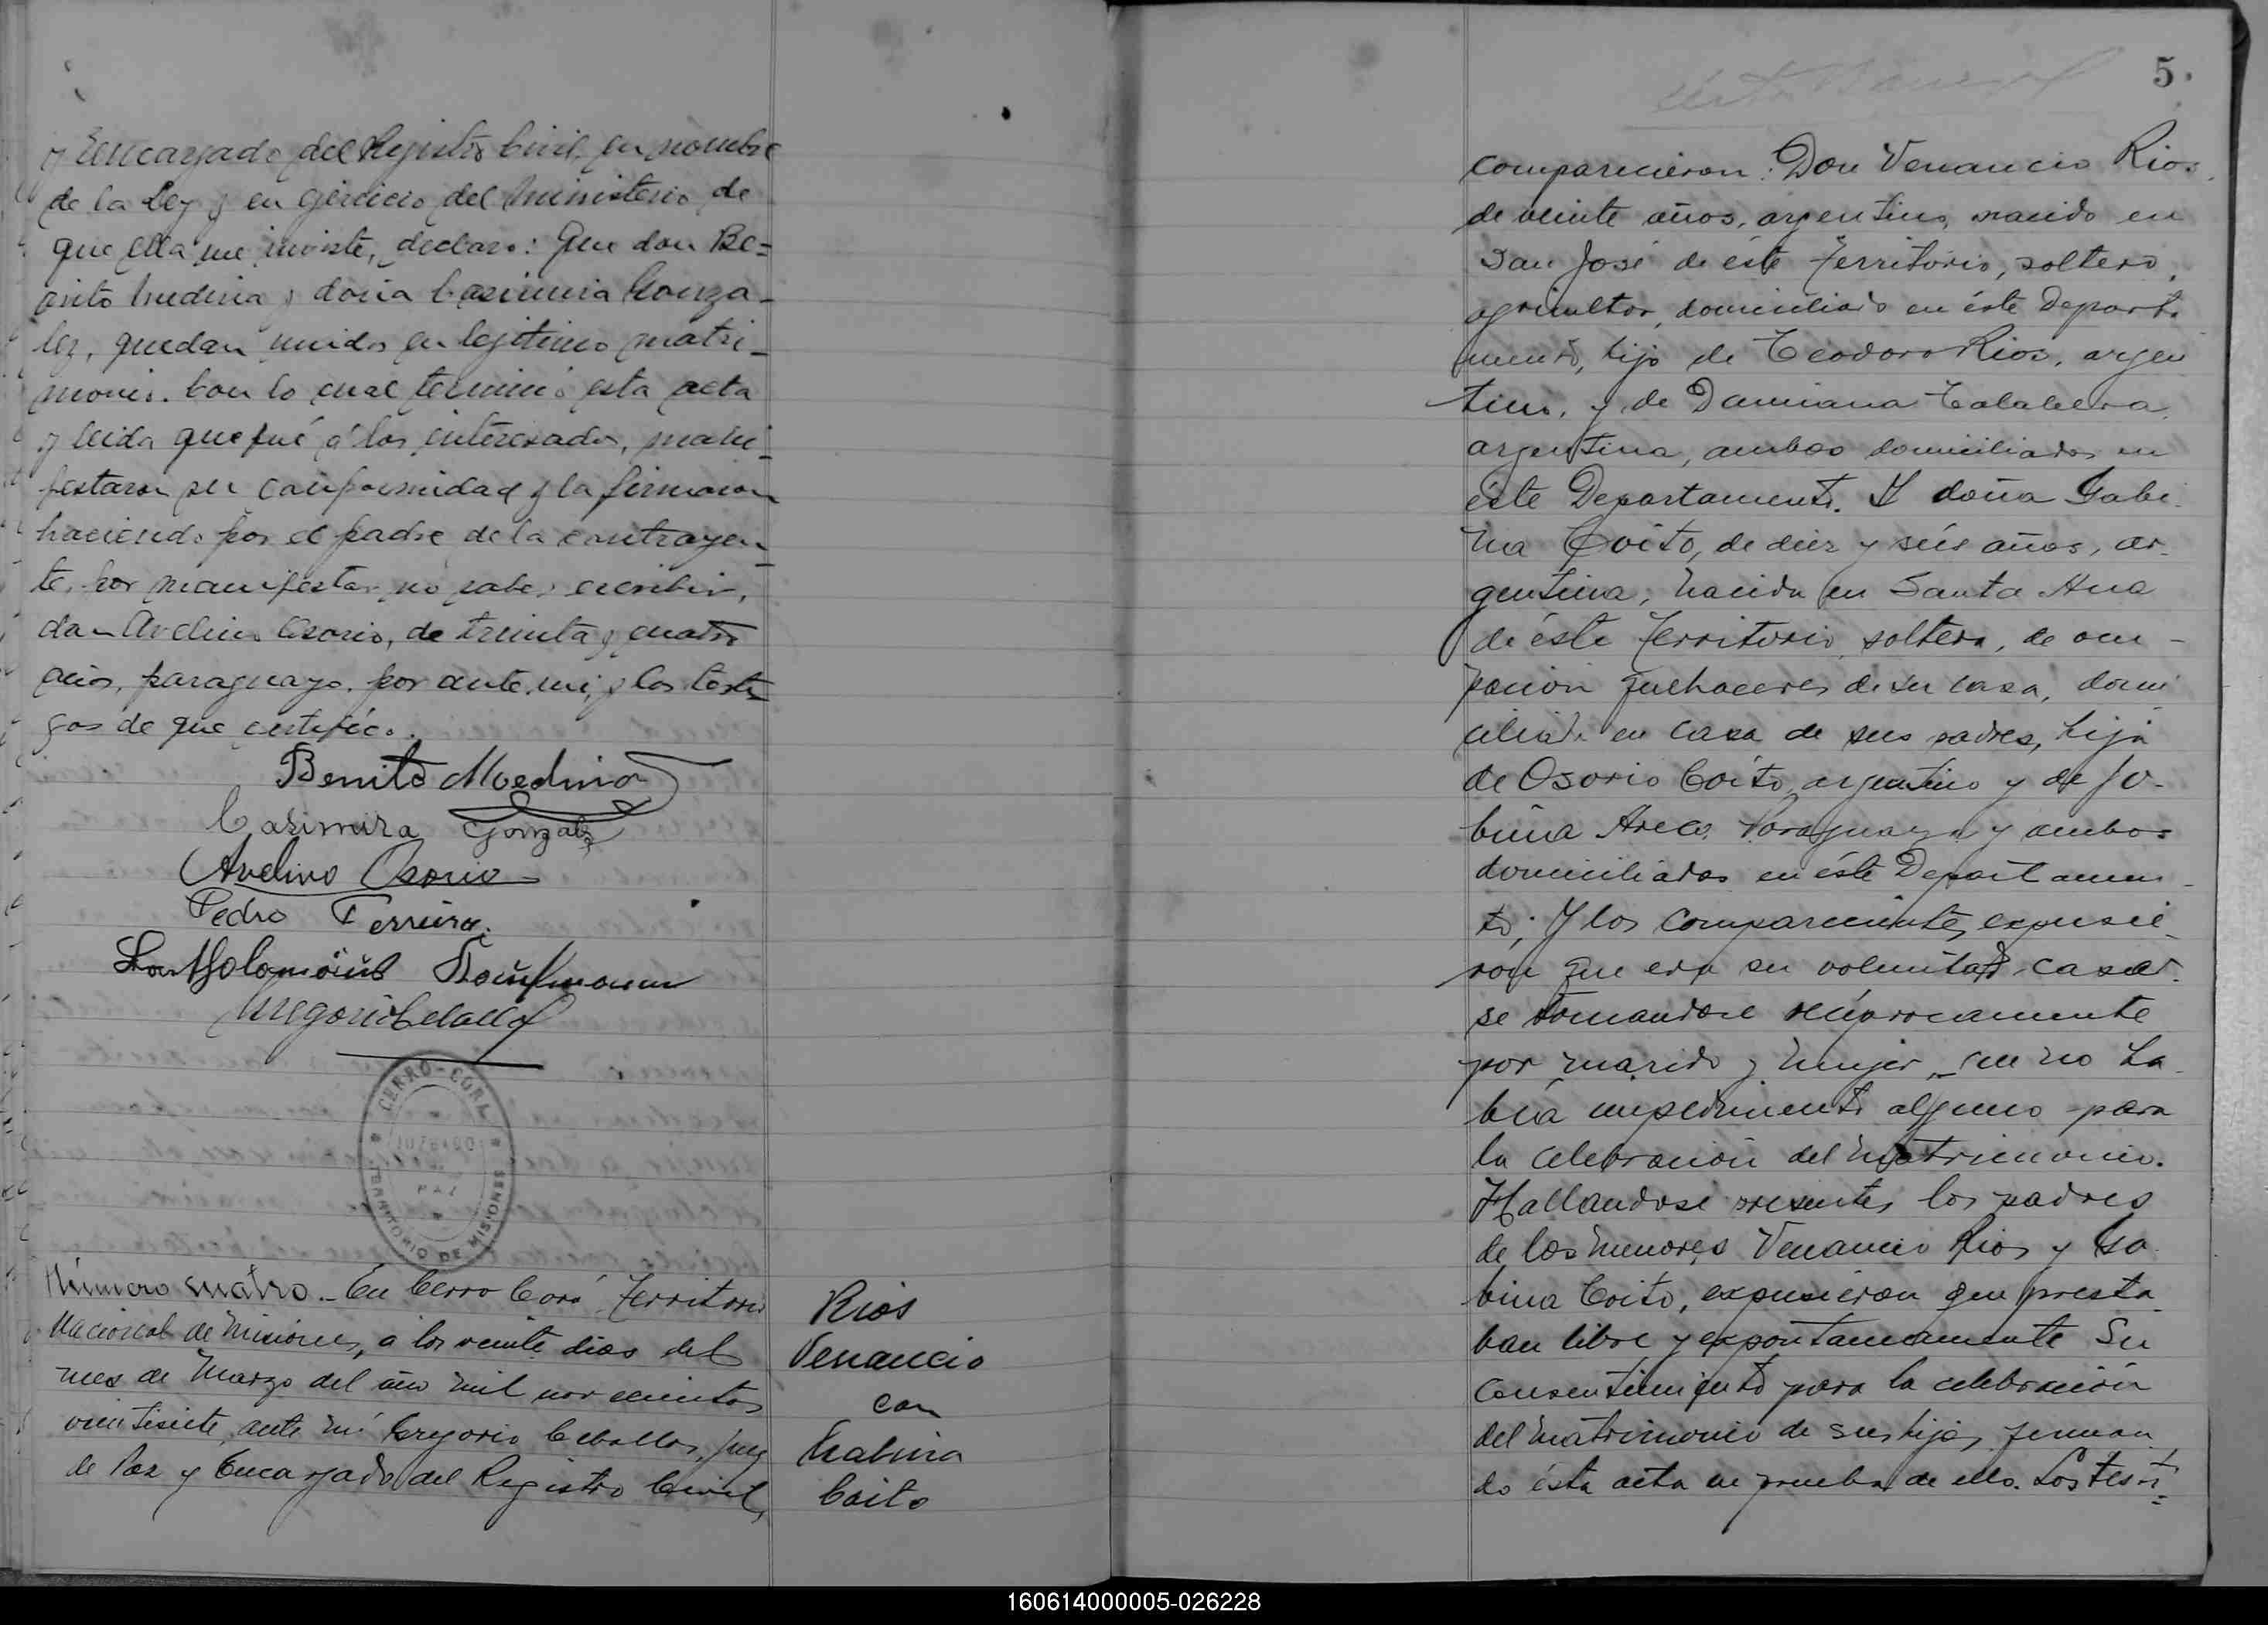 y Encargado del Registro Civil, en nombre
de la Ley y en ejercicio del Ministerio de
que ella me inviste, declaro: Que don Be=
nito Medina y doña Casimira Gonza_
lez, quedan unidos en legitimo matri_
monio. Con lo cual terminó esta acta
y leida que fué á los interesados, mani_
festaron su conformidad y la firmaron
haciendo por el padre de la contrayen_
te, por manifestar no saber escribir,
don Avelino Osorio, de treinta y cuatro
años, paraguayo, por ante mi, y los testi
gos de que certifico.
Benito Moedina
Casimira Gonzalz
Avelino Osorio
Pedro Ferreira
Bartholomäus Kaufmann
Gregorio Ceballos
CERRO-CORA
JUZGADO
PAZ
TERRITORIO DE MISIONES
Número cuatro._ En Cerro Corá, Territorio
Nacional de Misiones, a los veinte dias del
mes de Marzo del año mil novecientos
veintisiete, ante mi Gregorio Ceballos, Juez
de Paz y Encargado del Registro Civil,
Rios
Venancio
con
Gabina
Coito
5.
comparecieron: Don Venancio Rios,
de veinte años, argentino, nacido en
San José de éste Territorio, soltero,
agricultor, domiciliado en éste Departa
mento, hijo de Teodoro Rios, argen
tino, y de Damiana
argentina, ambos domiciliados en
éste Departamento. Y doña Gabi_
na Coito, de diez y séis años, ar_
gentina, nacida en Santa Ana
de éste Territorio, soltera, de ocu_
pación quehaceres de su casa, domi
ciliada en casa de sus padres, hija
de Osorio Coito, argentino y de Jo_
bina Areco, Paraguaya y ambos
domiciliados en éste Departamen_
to; Y los comparecientes expusie_
ron que era su voluntad casar_
se tomandose recíprocamente
por marido y mujer, que no ha_
bía impedimento alguno para
la celebración del matrimonio.
Hallandose presentes los padres
de los menores Venancio Rios y Ga_
bina Coito, expusieron que presta_
ban libre y expontaneamente su
consentimiento para la celebración
del matrimonio de sus hijos, firman_
do ésta acta en prueba de ello. Los testi_
160614000005-026228